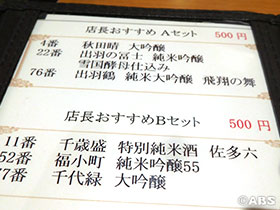 店長おすすめ Aセット 500円
4番 秋田晴 大吟醸
22番 出羽の冨士 純米吟醸
雪国酵母仕込み
76番 出羽鶴 純米大吟醸 飛翔の舞
店長おすすめBセット 500円
11番 千歳盛 特別純米酒 佐多六
52番 福小町 純米吟醸55
77番 千代緑 大吟醸
©ABS